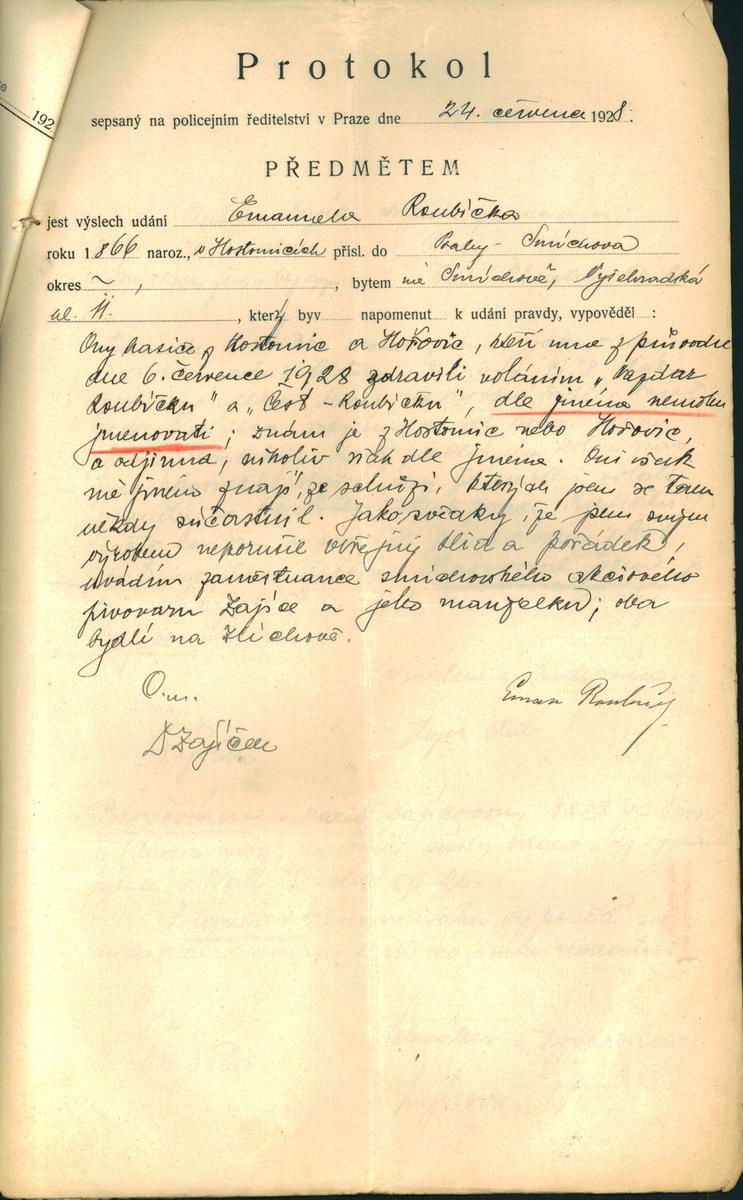 192
Protokol
sepsaný na policejním ředitelství v Praze dne 24. července 1928.
PŘEDMĚTEM
jest výslech udání Emanuela Roubíčka
roku 1866 naroz., v Hostomicích přísl. do Prahy - Smíchova
okres ~, , bytem na Smíchově, Vyšehradská
ul. 11. , který byv napomenut k udání pravdy, vypověděl :
Ony hasiče z Hostomic a Hořovic, kteří mne z průvodu
dne 6. července 1928 zdravili voláním „Nazdar
Roubíčku" a „Čest - Roubíčku", dle jména nemohu
jmenovati; znám je z Hostomic nebo Hořovic,
a odjinud, nikoliv však dle jména. Oni však
mé jméno znají, ze schůzí, kterých jsem se tam
někdy súčastnil. Jako svědky, že jsem svým
výrokem neporušil veřejný klid a pořádek,
uvádím zaměstnance smíchovského akciového
pivovaru Zajíce a jeho manželku; oba
bydlí na Zlíchově.
Eman Roubíček